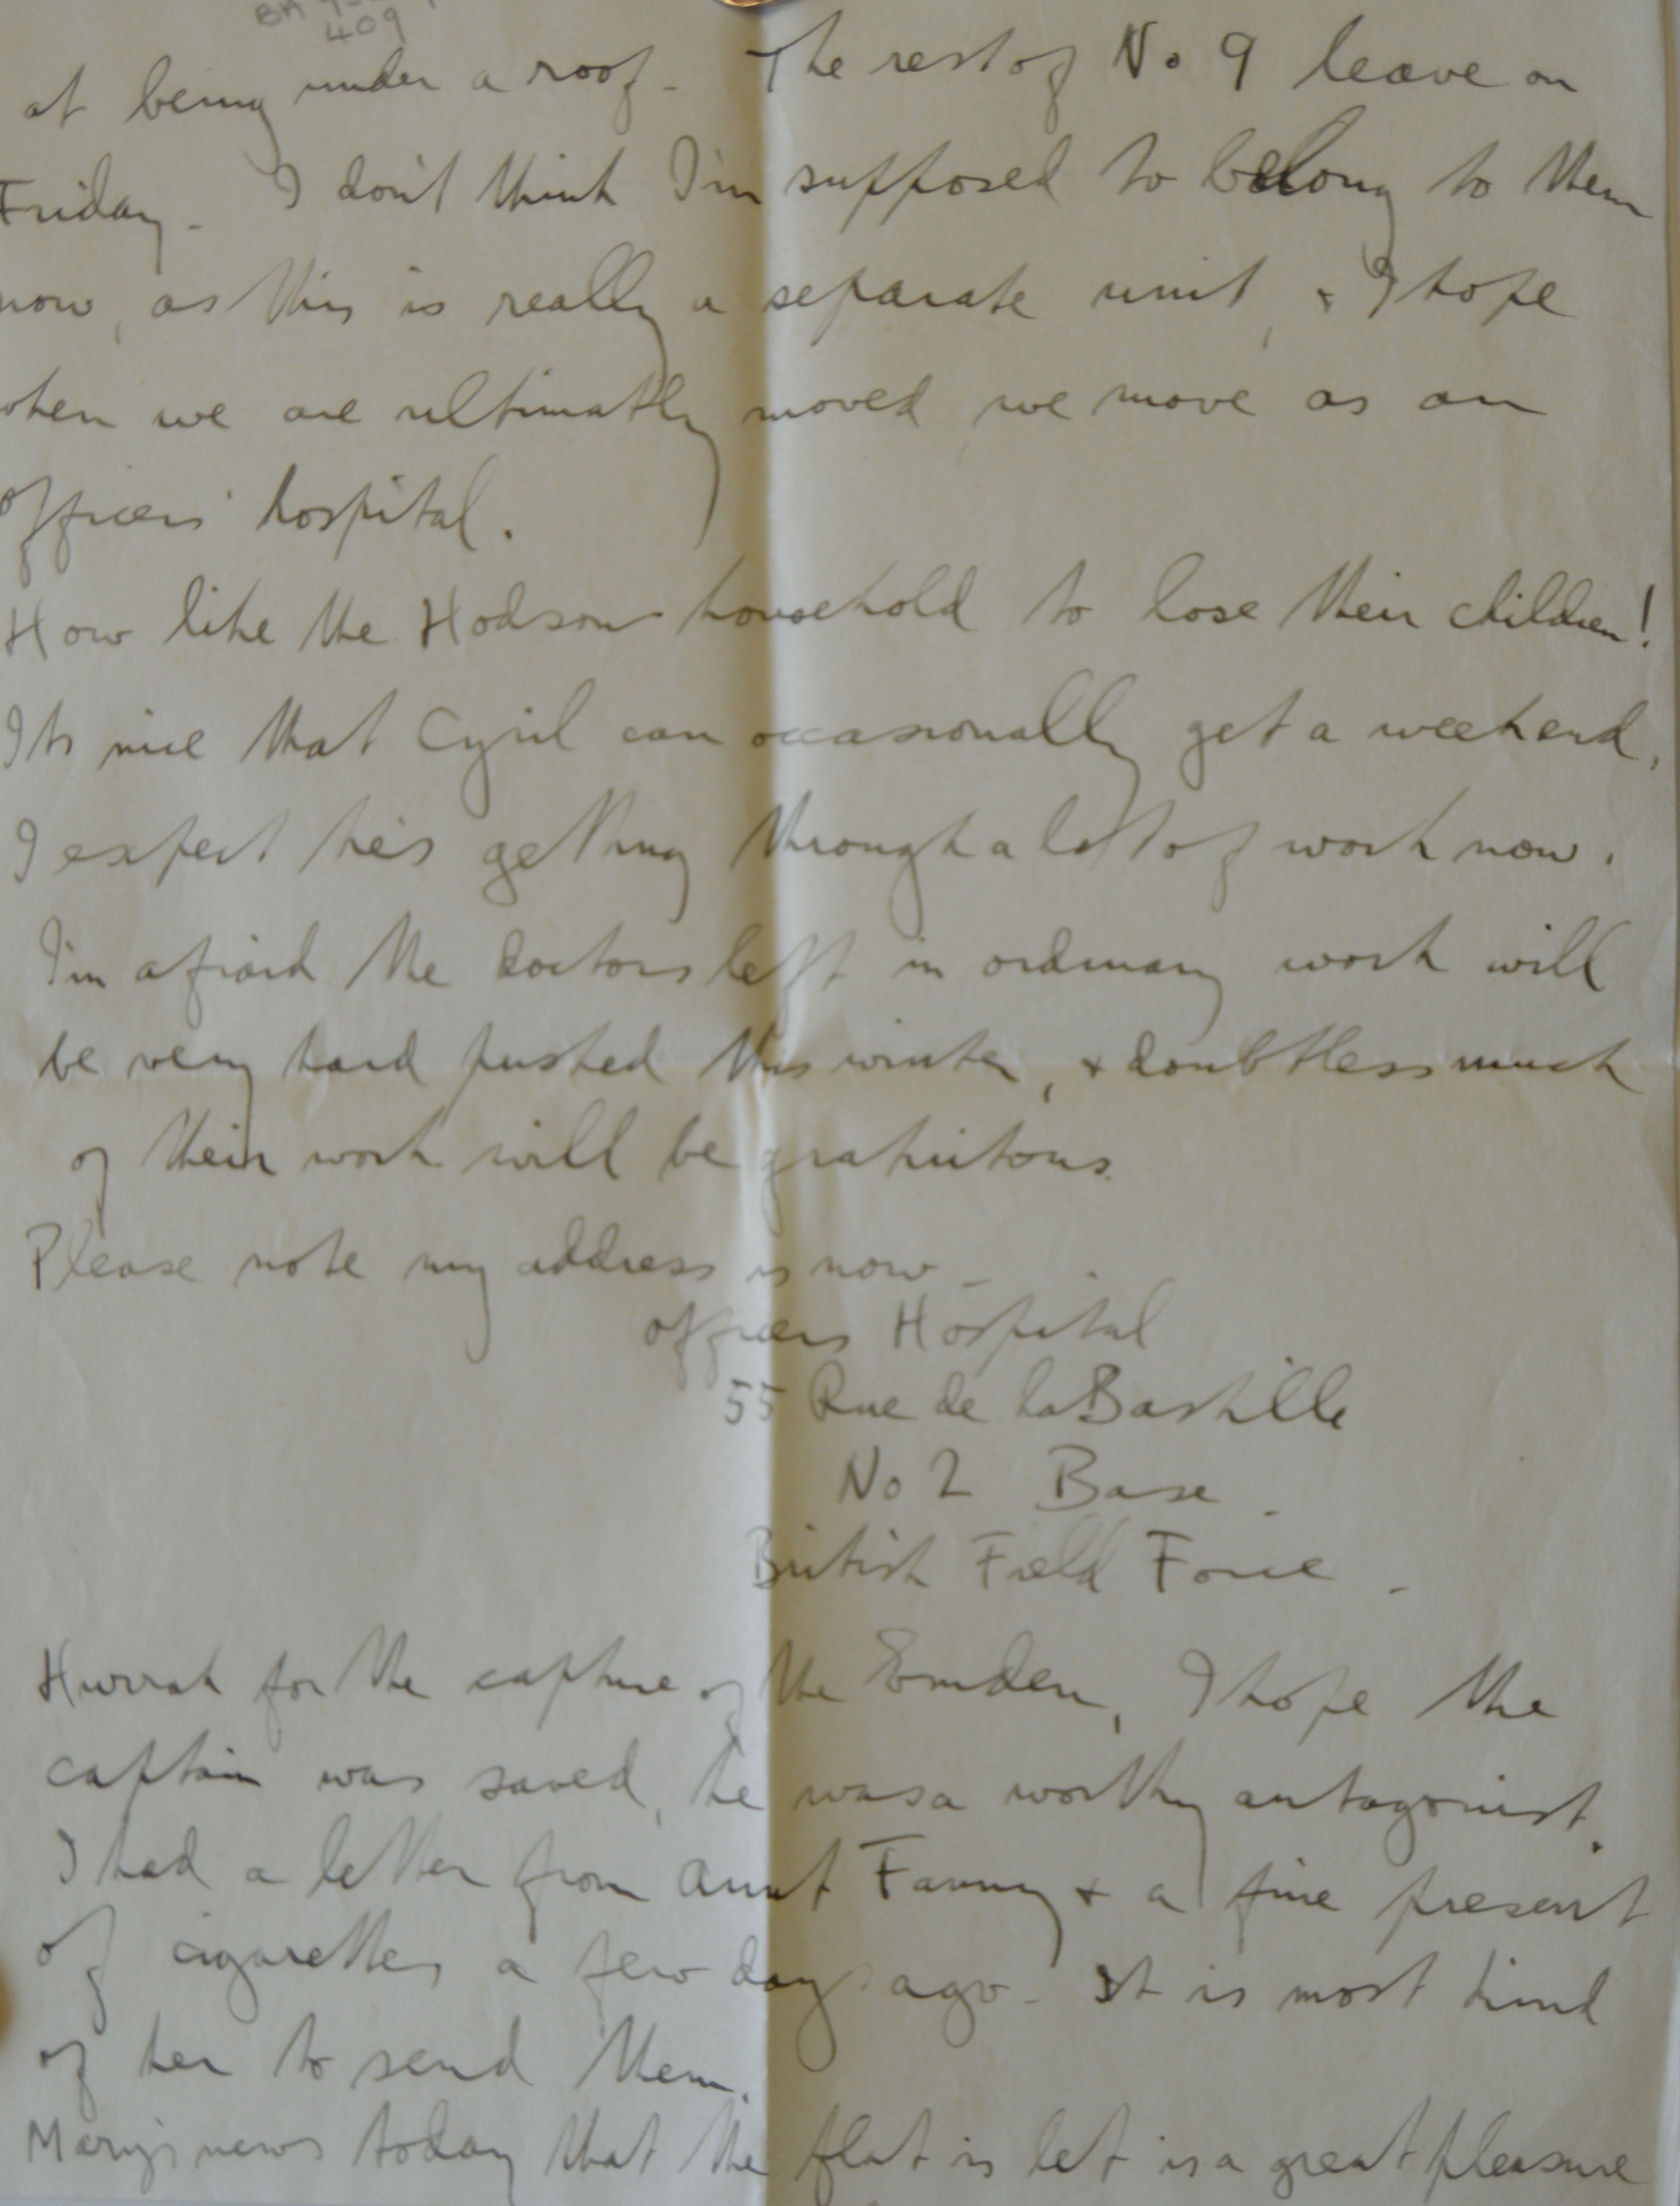 409
at being under a roof. The rest of No 9 leave on
Friday. I don't think I'm supposed to belong to them
now, as this is really a separate unit, & I hope
when we are ultimatly moved we move as an
officers' hospital.
How like the Hodson household to lose their children!
Its nice that Cyril can occasionally get a weekend,
I expect he's getting through a lot of work now.
I'm afraid the doctors left in ordinary work will
be very hard pushed this winter, & doubtless much
of their work will be gratuitous.
Please note my address is now -
Officers Hospital
55 Rue de la Bastille
No 2 Base.
British Field Force.
Hurrah for the capture of the Emden, I hope the
captain was saved, he was a worthy antagonist.
I had a letter from Aunt Fanny & a fine present
of cigarettes a few days ago. It is most kind
of her to send them.
Mary's news today that the flat is let is a great pleasure